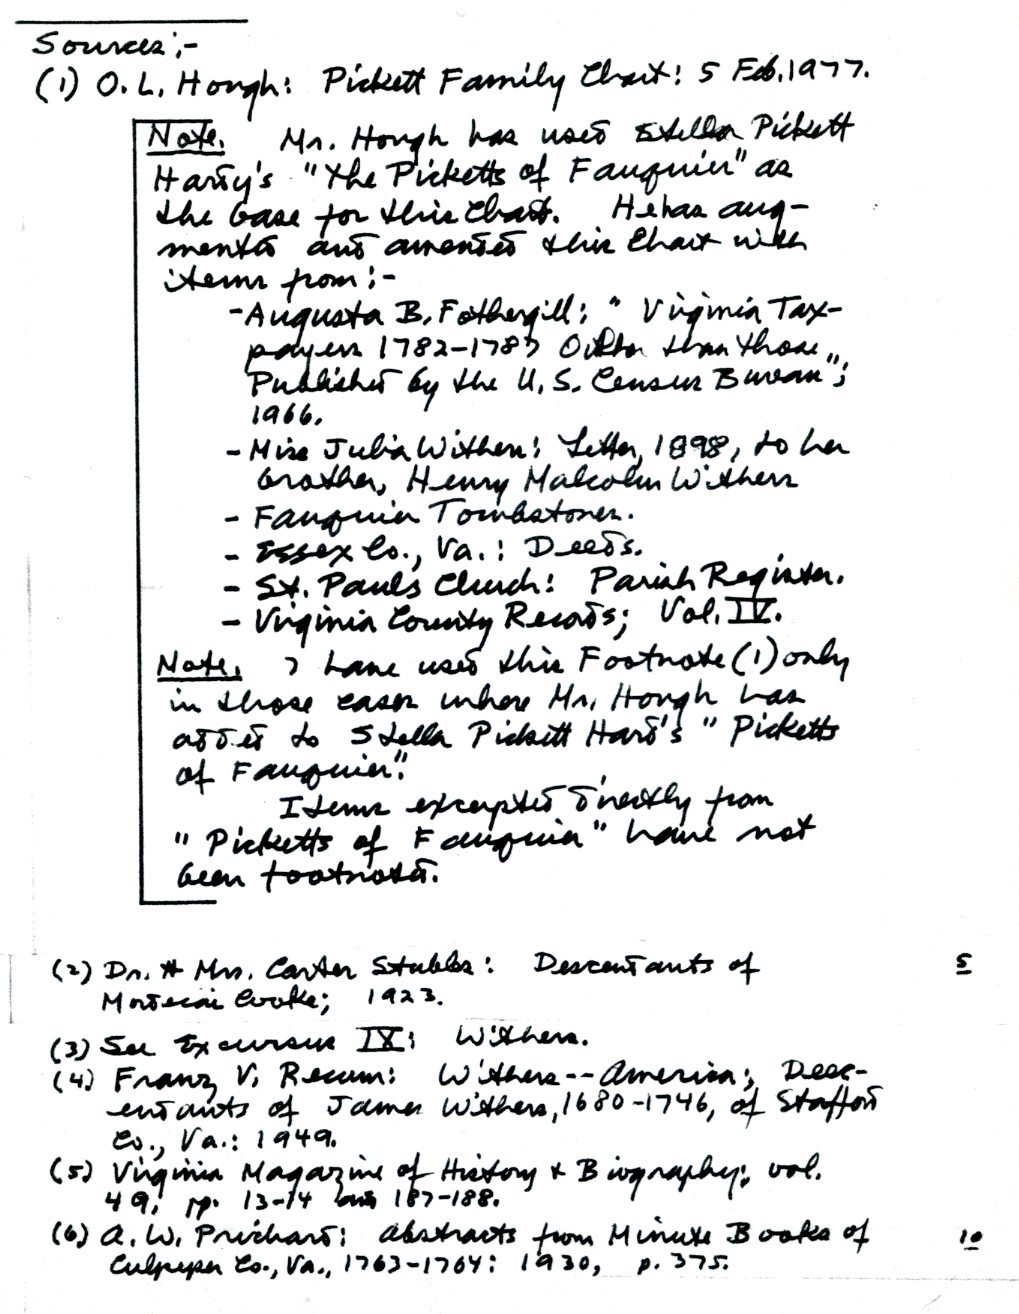 Sources:-
(1) O. L. Hough: Pickett Family Chart: 5 Feb. 1977.
Note. Mr. Hough has used Stella Pickett
Hardy's "The Picketts of Fauquier" as
the base for this Chart. He has aug-
mented and amended this Chart with
items from:-
-Augusta B. Fothergill: "Virginia Tax-
payers 1782-1787 Other than those
Published by the U. S. Census Bureau";
1966.
- Miss Julia Withers: Letter, 1898, to her
brother, Henry Malcolm Withers
- Fauquier Tombstones.
- Essex Co., Va.: Deeds.
- St. Pauls Church: Parish Register.
- Virginia County Records; Vol. IV.
Note. I have used this Footnote (1) only
in those cases where Mr. Hough has
added to Stella Pickett Hard's "Picketts
of Fauquier".
Items excerpted directly from
"Picketts of Fauquier" have not
been footnoted.
(2) Dr. & Mrs. Carter Stubbs: Descendants of 5
Mordecai Cooke; 1923.
(3) See Excursus IX: Withers.
(4) Franz V. Recum: Withers--America; Desc-
endants of James Withers, 1680-1746, of Stafford
Co., Va.: 1949.
(5) Virginia Magazine of History & Biography; vol.
49, pp. 13-14 and 187-188.
(6) A. W. Prichard: Abstracts from Minute Books of 10
Culpeper Co., Va., 1763-1764: 1930, p. 375.